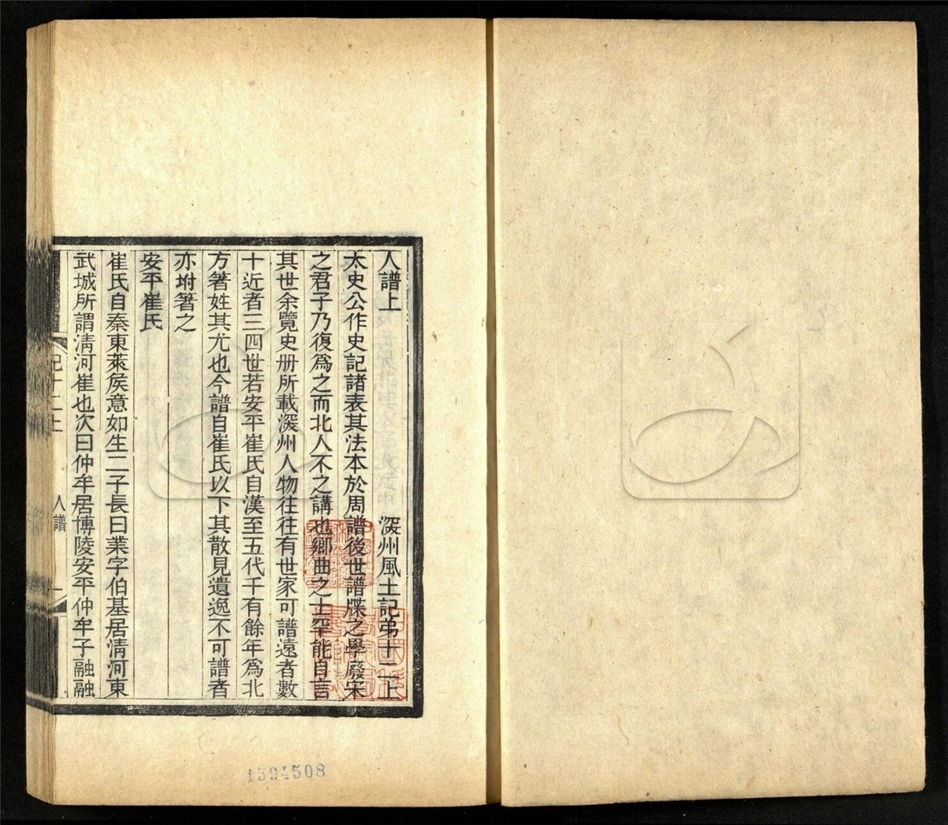 人譜上 深州風土記弟十二上
太史公作史記諸表其法本於周譜後世譜牒之學廢宋
之君子乃復爲之而北人不之講也鄉曲之士罕能自言
其世余覽史册所載深州人物往往有世家可譜遠者數
十近者三四世若安平崔氏自漢至五代千有餘年爲北
方箸姓其尤也今譜自崔氏以下其散見遺逸不可譜者
亦坿箸之
安平崔氏
崔氏自秦東萊侯意如生二子長曰業字伯基居淸河東
武城所謂淸河崔也次曰仲牟居博陵安平仲牟子融融
記十二上 人譜 一
1594508